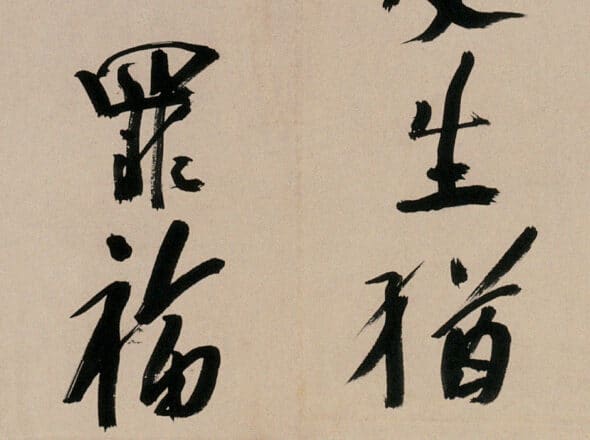 生猶
罪福